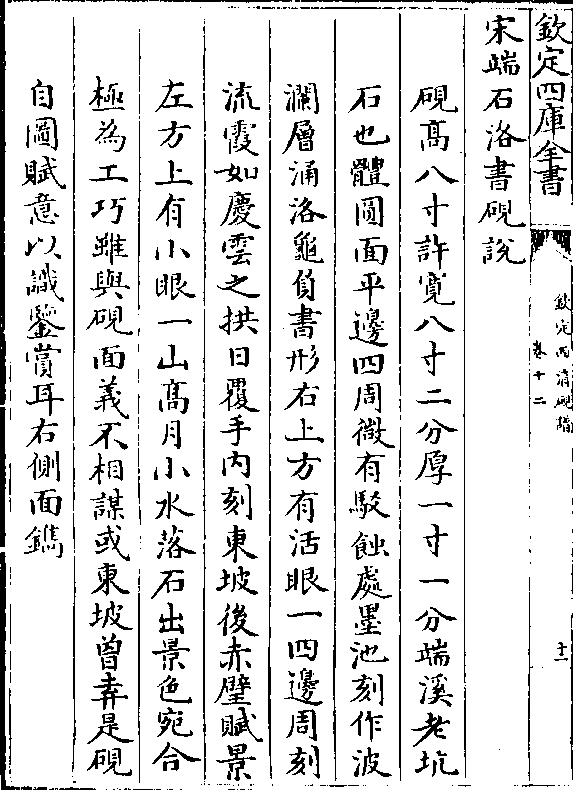 欽定四庫全書
欽定西清硯譜
卷十二
十二
宋端石洛書硯説
硯髙八寸許寛八寸二分厚一寸一分端溪老坑
石也體圓面平邊四周微有駁蝕處墨池刻作波
瀾層涌洛龜負書形右上方有活眼一四邊周刻
流霞如慶雲之拱日覆手内刻東坡後赤壁賦景
左方上有小眼一山髙月小水落石出景色宛合
極為工巧雖與硯面義不相謀或東坡曾弆是硯
自圖賦意以識鑒賞耳右側面鐫